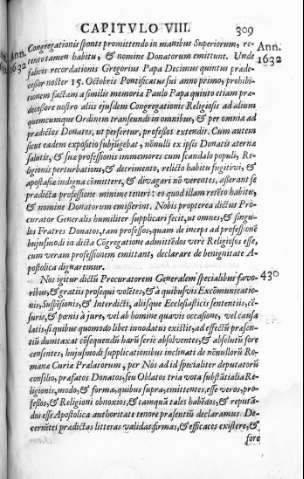 CAPITVLO VIII. 309
Ann. 1632
Congregationis sponte promittendo in manibus Superiorum, re-
tento tamen habitu, & nomine Donatorum emittunt. Unde
felicis recordationis Gregorius Papa Decimus quintus præde-
cessor noster 15. Octobris Pontificatus sui anno primo, prohibi-
tionem factam a similis memoria Paulo Papa quinto etiam præ-
decessore nostro aliis eiusdem Congregationis Religiosis ad alium
quemcumque Ordinem transeundi in omnibus, & per omnia ad
prædictos Donatos, ut præfertur, professos extendit. Cum autem
sicut eadem expositio subjūgebat, nōnulli ex ipsis Donatis æterna
salutis, & suæ professionis immemores cum scandalo populi, Re-
ligionis perturbationis, & detrimento, relicto habitu fugitivi, &
apostasia indigna committere, & divagari nō verentes, asserant se
prædicta professione minime teneri: eo quod illam retēto habitu,
& nomine Donatorum emiserint. Nobis propterea dictus Pro-
curator Generalis humiliter supplicari fecit, ut omnes, & singu-
los Fratres Donatos, tam professos, quam de incepa ad professionē
hujusmodi in dicta Cōgregatione admittēdos vere Religiosos esse,
cum veram professionem emittant, declarare de benignitate A-
postolica dignaremur.
Nos igitur dictū Procuratorem Generalem specialibus favo-
ribus, & gratiis prosequi volētes, & à quibusvis Excōmunicatio-
nis, Suspēsionis, & Interdicti, aliisque Ecclesiasticis sententiis, cē-
suris, & pœnis à jure, vel ab homine quavis occasione, vel causa
latis, si quibus quomodo libet innodatus existit, ad effectū præsen-
tiū dumtaxat cōsequendū harū serie absolventes, & absolutū fore
censentes, hujusmodi supplicationibus inclinati de nōnullorū Ro-
mana Curia Prælatorum, per Nos ad id specialiter deputatorū
consilio, præfatos Donatos, seu Oblatos tria vota substātialia Re-
ligionis, modo, & forma, quibus supra, emittentes, esse veros, pro-
fessos, & Religioni obnoxios, & tamquā tales habēdos, & reputā-
dos esse Apostolica authoritate tenore præsentiū declaramus. De-
cernētes prædictas litteras validas, firmas, & efficaces existere, &
fore
Ann.
1632
430